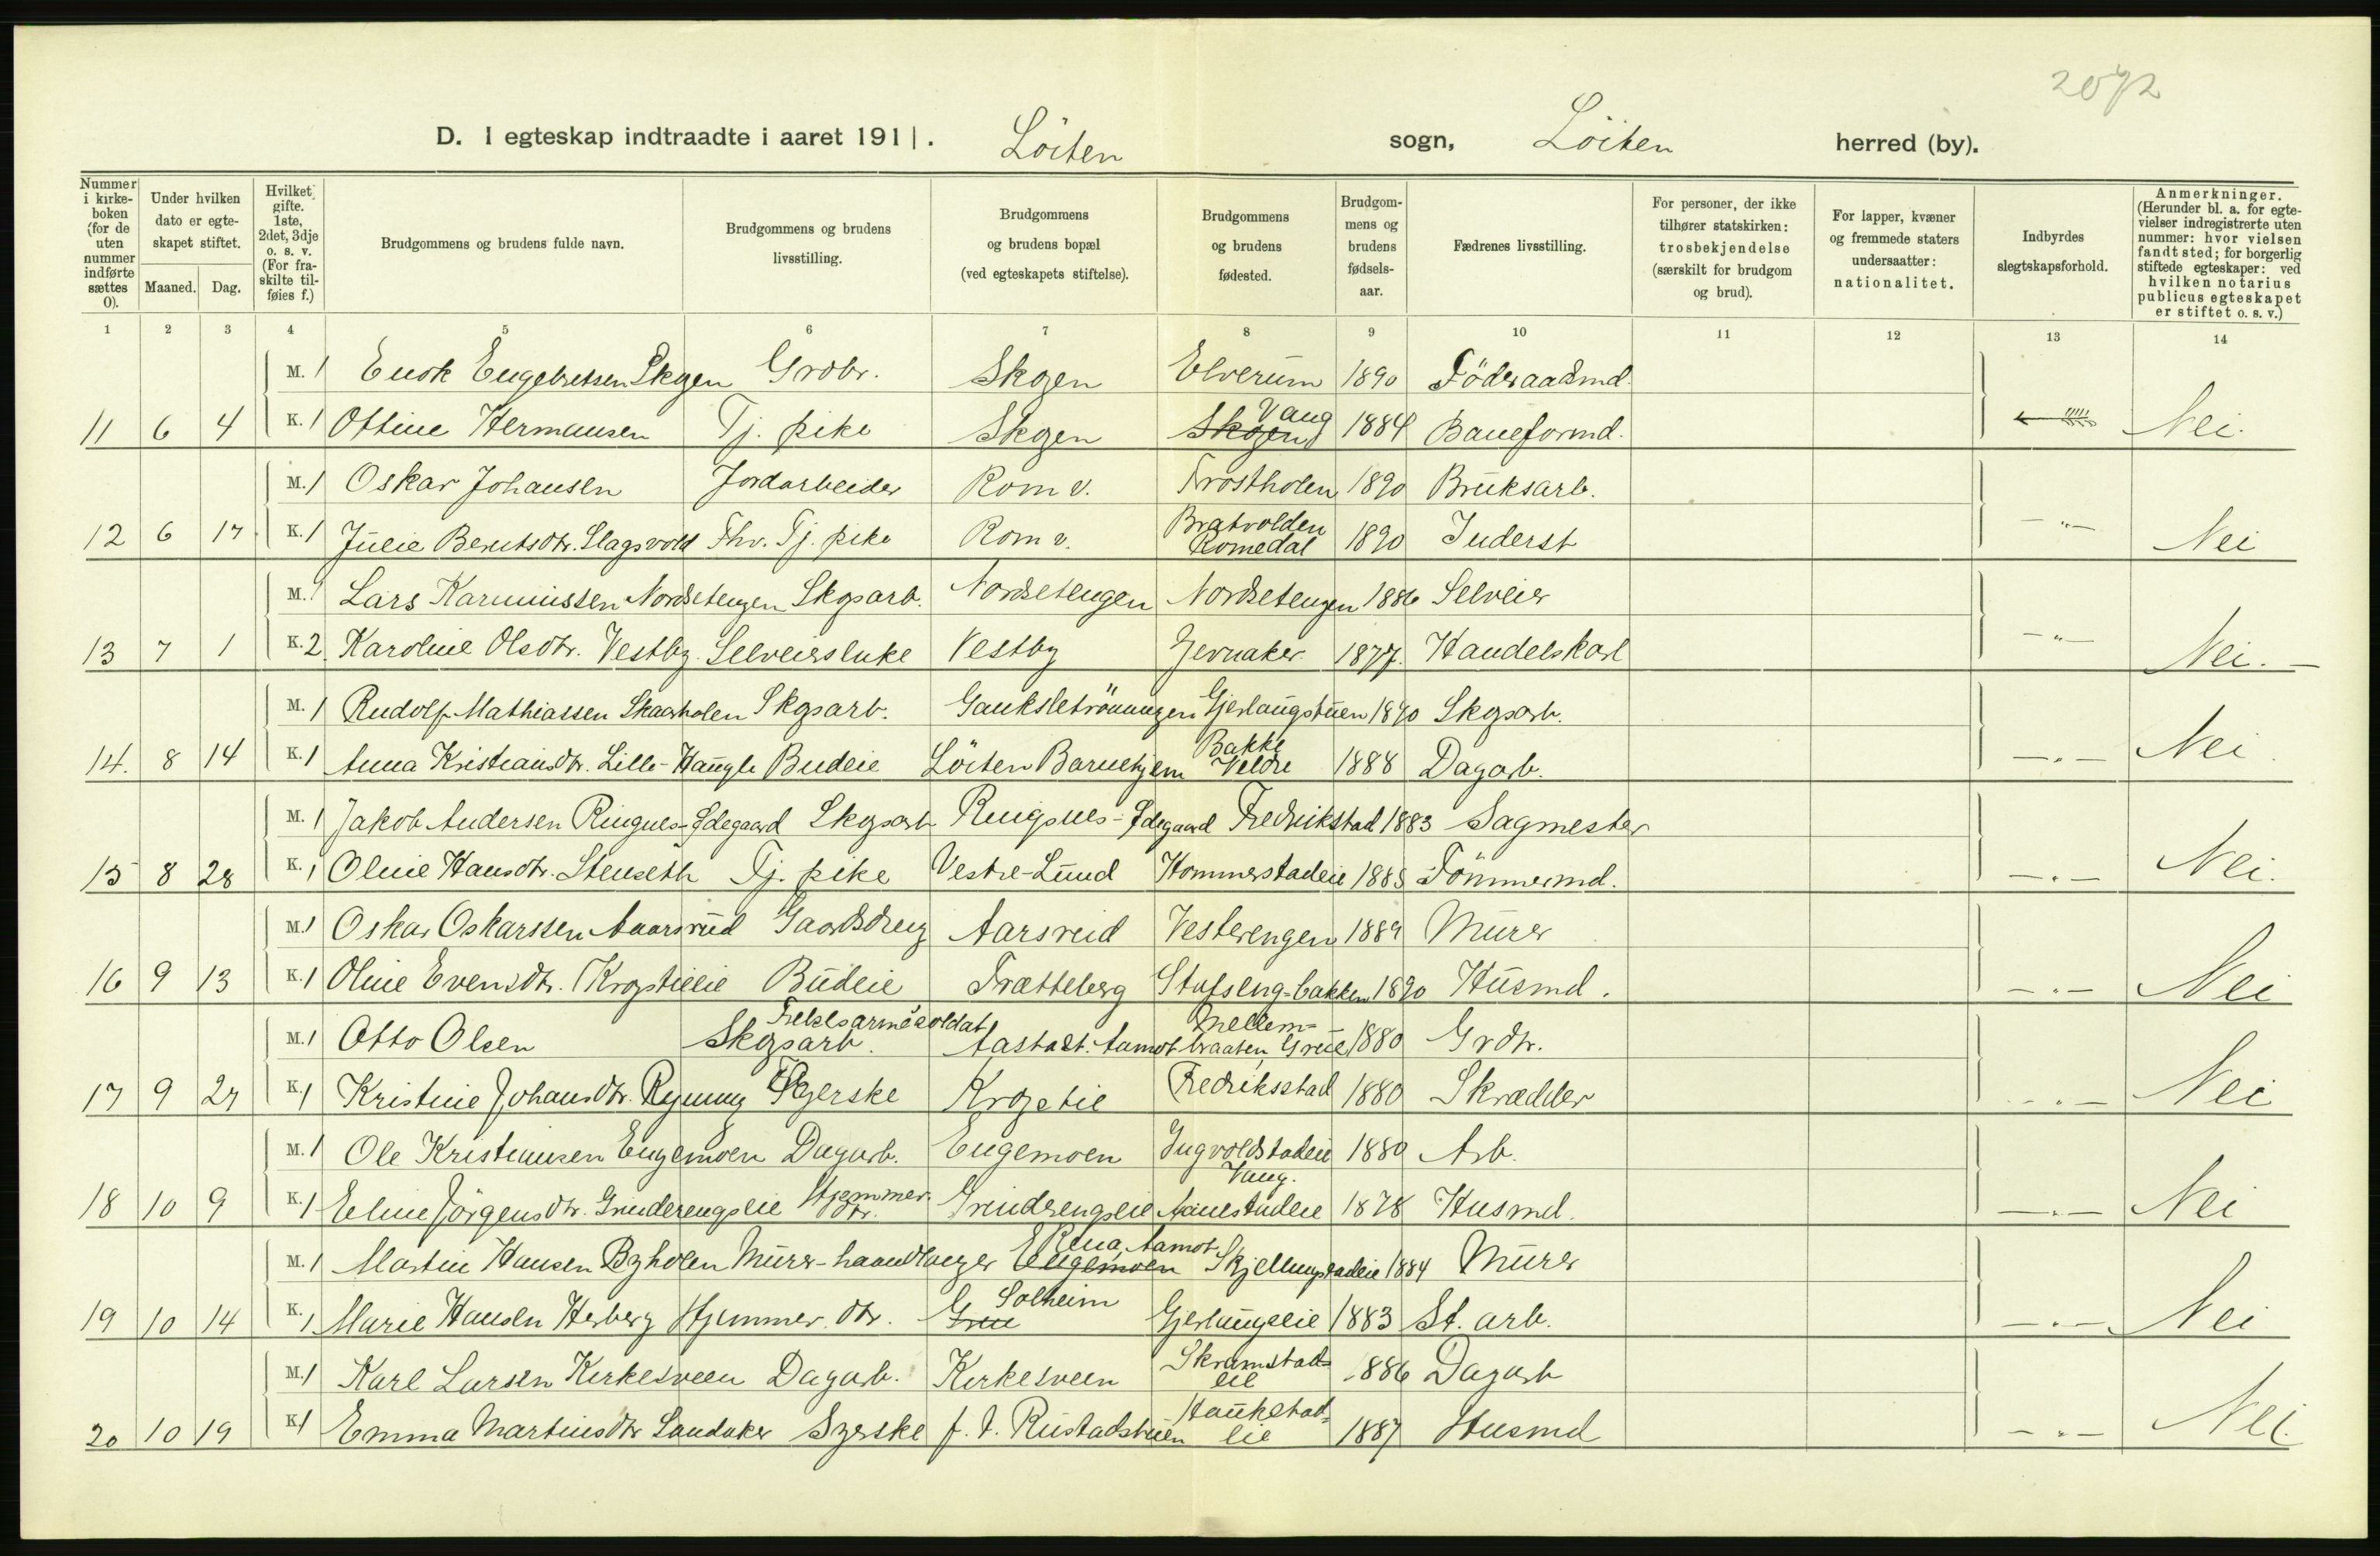 2072
D. I egteskap indtraadte i aaret 1911. Löiten sogn, Löiten herred (by).
Nummer i kirkeboken (for de uten nummer indførte sættes 0).
Under hvilken dato er egteskapet stiftet.
Maaned. Dag.
Hvilket gifte. 1ste, 2det, 3dje o. s. v. (For fraskilte tilføies f.)
Brudgommens og brudens fulde navn.
Brudgommens og brudens livsstilling.
Brudgommens og brudens bopæl (ved egteskapets stiftelse).
Brudgommens og brudens fødested.
Brudgommens og brudens fødselsaar.
Fædrenes livsstilling.
For personer, der ikke tilhører statskirken: trosbekjendelse (særskilt for brudgom og brud).
For lapper, kvæner og fremmede staters undersaatter: nationalitet.
Indbyrdes slegtskapsforhold.
Anmerkninger. (Herunder bl. a. for egtevielser indregistrerte uten nummer: hvor vielsen fandt sted; for borgerlig stiftede egteskaper: ved hvilken notarius publicus egteskapet er stiftet o. s. v.)
1 2 3 4 5 6 7 8 9 10 11 12 13 14
M. 1 Enok Engebretsen Skogen Grdbr. Skogen Elverum 1890 Föderaadsmd.
11 6 4 K. 1 Ottine Hermansen Tj. pike Skogen Skogen Vang 1884 Baneformd. Nei.
M. 1 Oskar Johansen Jordarbeider Rom v. Frostholen 1890 Bruksarb.
12 6 17 K. 1 Julie Berntsdtr. Slagsvold Fhv. Tj. pike Rom v. Bratvolden Romedal 1890 Inderst —"— Nei
M. 1 Lars Karinussen Nordsetengen Skogsarb. Nordsetengen Nordsetengen 1886 Selveier
13 7 1 K. 2 Karoline Olsdtr. Vestby Selveiersluke Vestby Jevnaker 1877. Handelskarl —"— Nei. —
M. 1 Rudolf Mathiassen Skaarholen Skogsarb. Gaukstetrönningen Gjerlaugstuen 1890 Skogsarb.
14. 8 14 K. 1 Anna Kristiansdtr. Lille-Haugle Budeie Löiten Barnehjem Bakke Veldre 1888 Dagarb. —"— Nei.
M. 1 Jakob Andersen Ringnes-Ødegaard Skogsarb Ringsnes-Ødegaard Fredrikstad 1883 Sagmester
15 8 28 K. 1 Oline Hansdtr. Stenseth Tj. pike Vestre-Lund Hommerstadeie 1885 Tömmermd. —"— Nei.
M. 1 Oskar Oskarssen Aaarsrud Gaardsdreng Aarsrud Vesterengen 1889 Murer
16 9 13 K. 1 Oline Evensdtr. Krogstieeie Budeie Fratteberg Stufseng-bakken 1890 Husmd. —"— Nei
M. 1 Otto Olsen Skogsarb. Frelsarmésoldat Aasta st. Aamot Mellem-braaten, Grue 1880 Grdbr.
17 9 27 K. 1 Kristine Johansdtr. Rynning Syerske Krogstie Fredriksstad 1880 Skrædder —"— Nei
M. 1 Ole Kristiansen Engemoen Dagarb. Engemoen Ingvoldstadeie 1880 Arb.
18 10 9 K. 1 Eline Jörgensdtr. Grinderengseie Hjemmev. dtr. Grinderengseie Vang. Aanestadeie 1878 Husmd. —"— Nei
M. 1 Martin Hansen Byholen Murer-haandlanger Engemoen Rena, Aamot Skjellungstadeie 1884 Murer
19 10 14 K. 1 Marie Hansen Herberg Hjemmev. dtr. Grue Solheim Gjerlaugseie 1883 St. arb. —"— Nei
M. 1 Karl Larsen Kirkesveen Dagarb. Kirkesveen Skramstad-eie 1886 Dagarb
20 10 19 K. 1 Emma Martinsdtr Sandaker Syerske f. t. Rustadstuen Haukstad-eie 1887 Husmd —"— Nei.